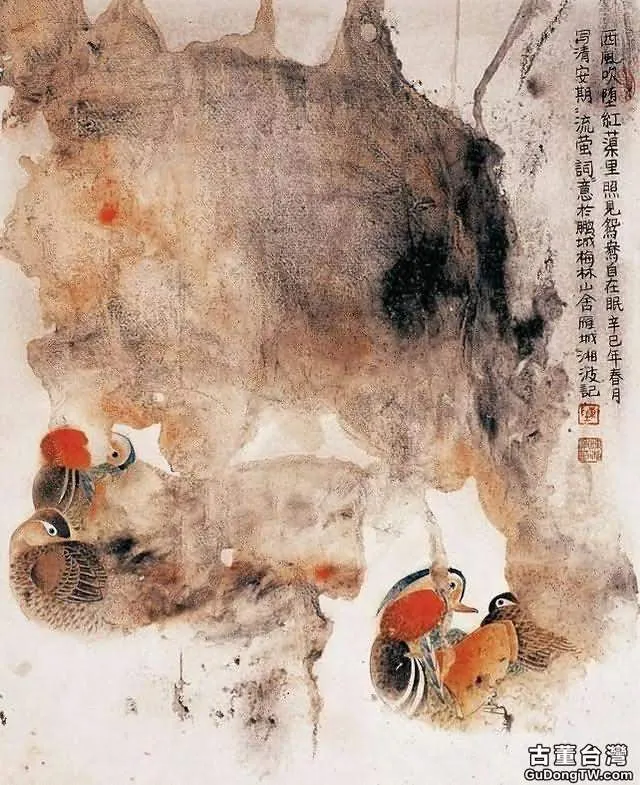 西風吹堕紅蕖里照見鴛鴦自在眠辛巳年春月
写清安期流萤詞意於鹏城梅林山舍雁城湘波記
古董台灣
GuDongTW.com